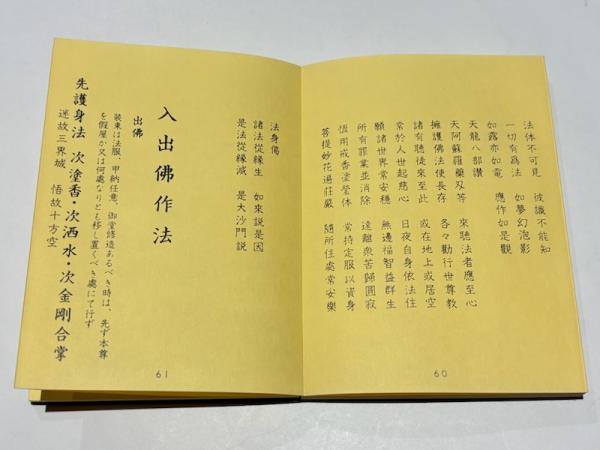 法体不可見　彼識不能知
一切有為法　如夢幻泡影
如露亦如電　應作如是觀
天龍八部讃
天阿蘇羅藥叉等　來聽法者應至心
擁護佛法使長存　各々勸行世尊教
諸有聽徒來至此　或在地上或居空
常於人世起慈心　日夜自身依法住
願諸世界常安穩　無邊福智益群生
所有罪業並消除　遠離衆苦歸圓寂
恆用戒香塗瑩体　常持定服以資身
菩提妙花遍莊嚴　隨所住處常安樂
60
法身偈
諸法從縁生　如來説是因
是法從縁滅　是大沙門説
入出佛作法
出佛
装束は法服、甲衲任意、御堂修造あるべき時は、先ず本尊
を假屋か又は何處なりとも移し置くべき處にて行ず
先護身法　次塗香・次洒水・次金剛合掌
迷故三界城　悟故十方空
61